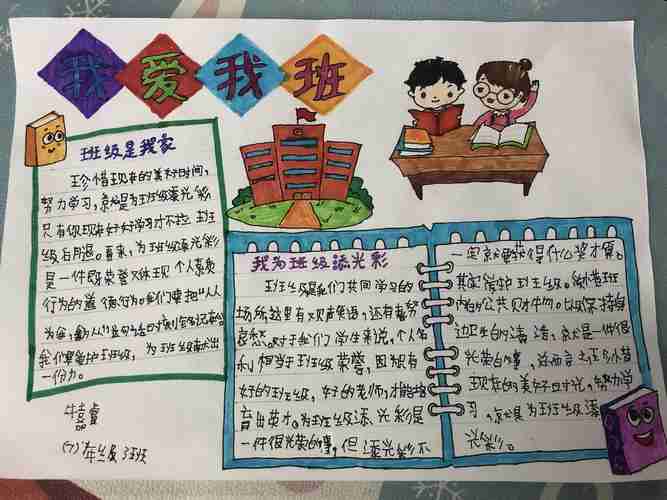 我爱我班
班级是我家
珍惜现在的美好时间,
努力学习,就是为班级添光彩
只有你现在好好学习才不拉班
级后腿。看来,为班级添光彩
是一件既荣誉又体现个人素质
行为的道德行为。我们要把"人人
为我
我们要爱护班级,为班级献出
一份力。
(7)年级3班
我为班级添光彩
班级是我们共同学习的
场所这里有欢声笑语,还有努
对于我们学生来说,个人名
利相当于班级荣誉,因为有
好的班级,好的老师,才能培
育出英才。为班级添光彩是
一件很光荣的事,但添光彩不
一定就要获得什么奖才算。
其实爱护班级。珍惜班
内的公共财物。以及保持身
边卫生的清洁,就是一件很
光荣的事,总而言之任务珍惜
现在的美好时光,努力学
习,就是为班级添
光彩。